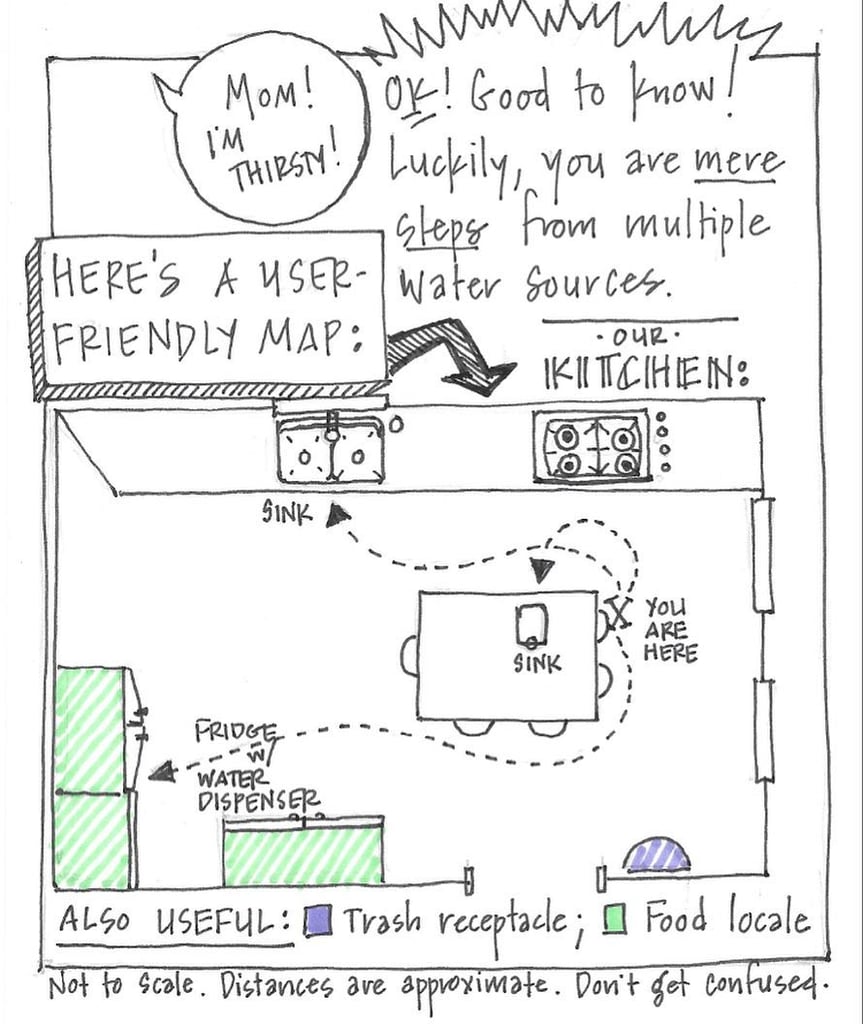 MOM!
I'M
THIRSTY!
OK! Good to know!
Luckily, you are mere
steps from multiple
water sources.
HERE'S A USER-
FRIENDLY MAP:
·OUR·
KITCHEN:
SINK
SINK
X YOU
ARE
HERE
FRIDGE
W/
WATER
DISPENSER
ALSO USEFUL: Trash receptacle; Food locale
Not to scale. Distances are approximate. Don't get confused.